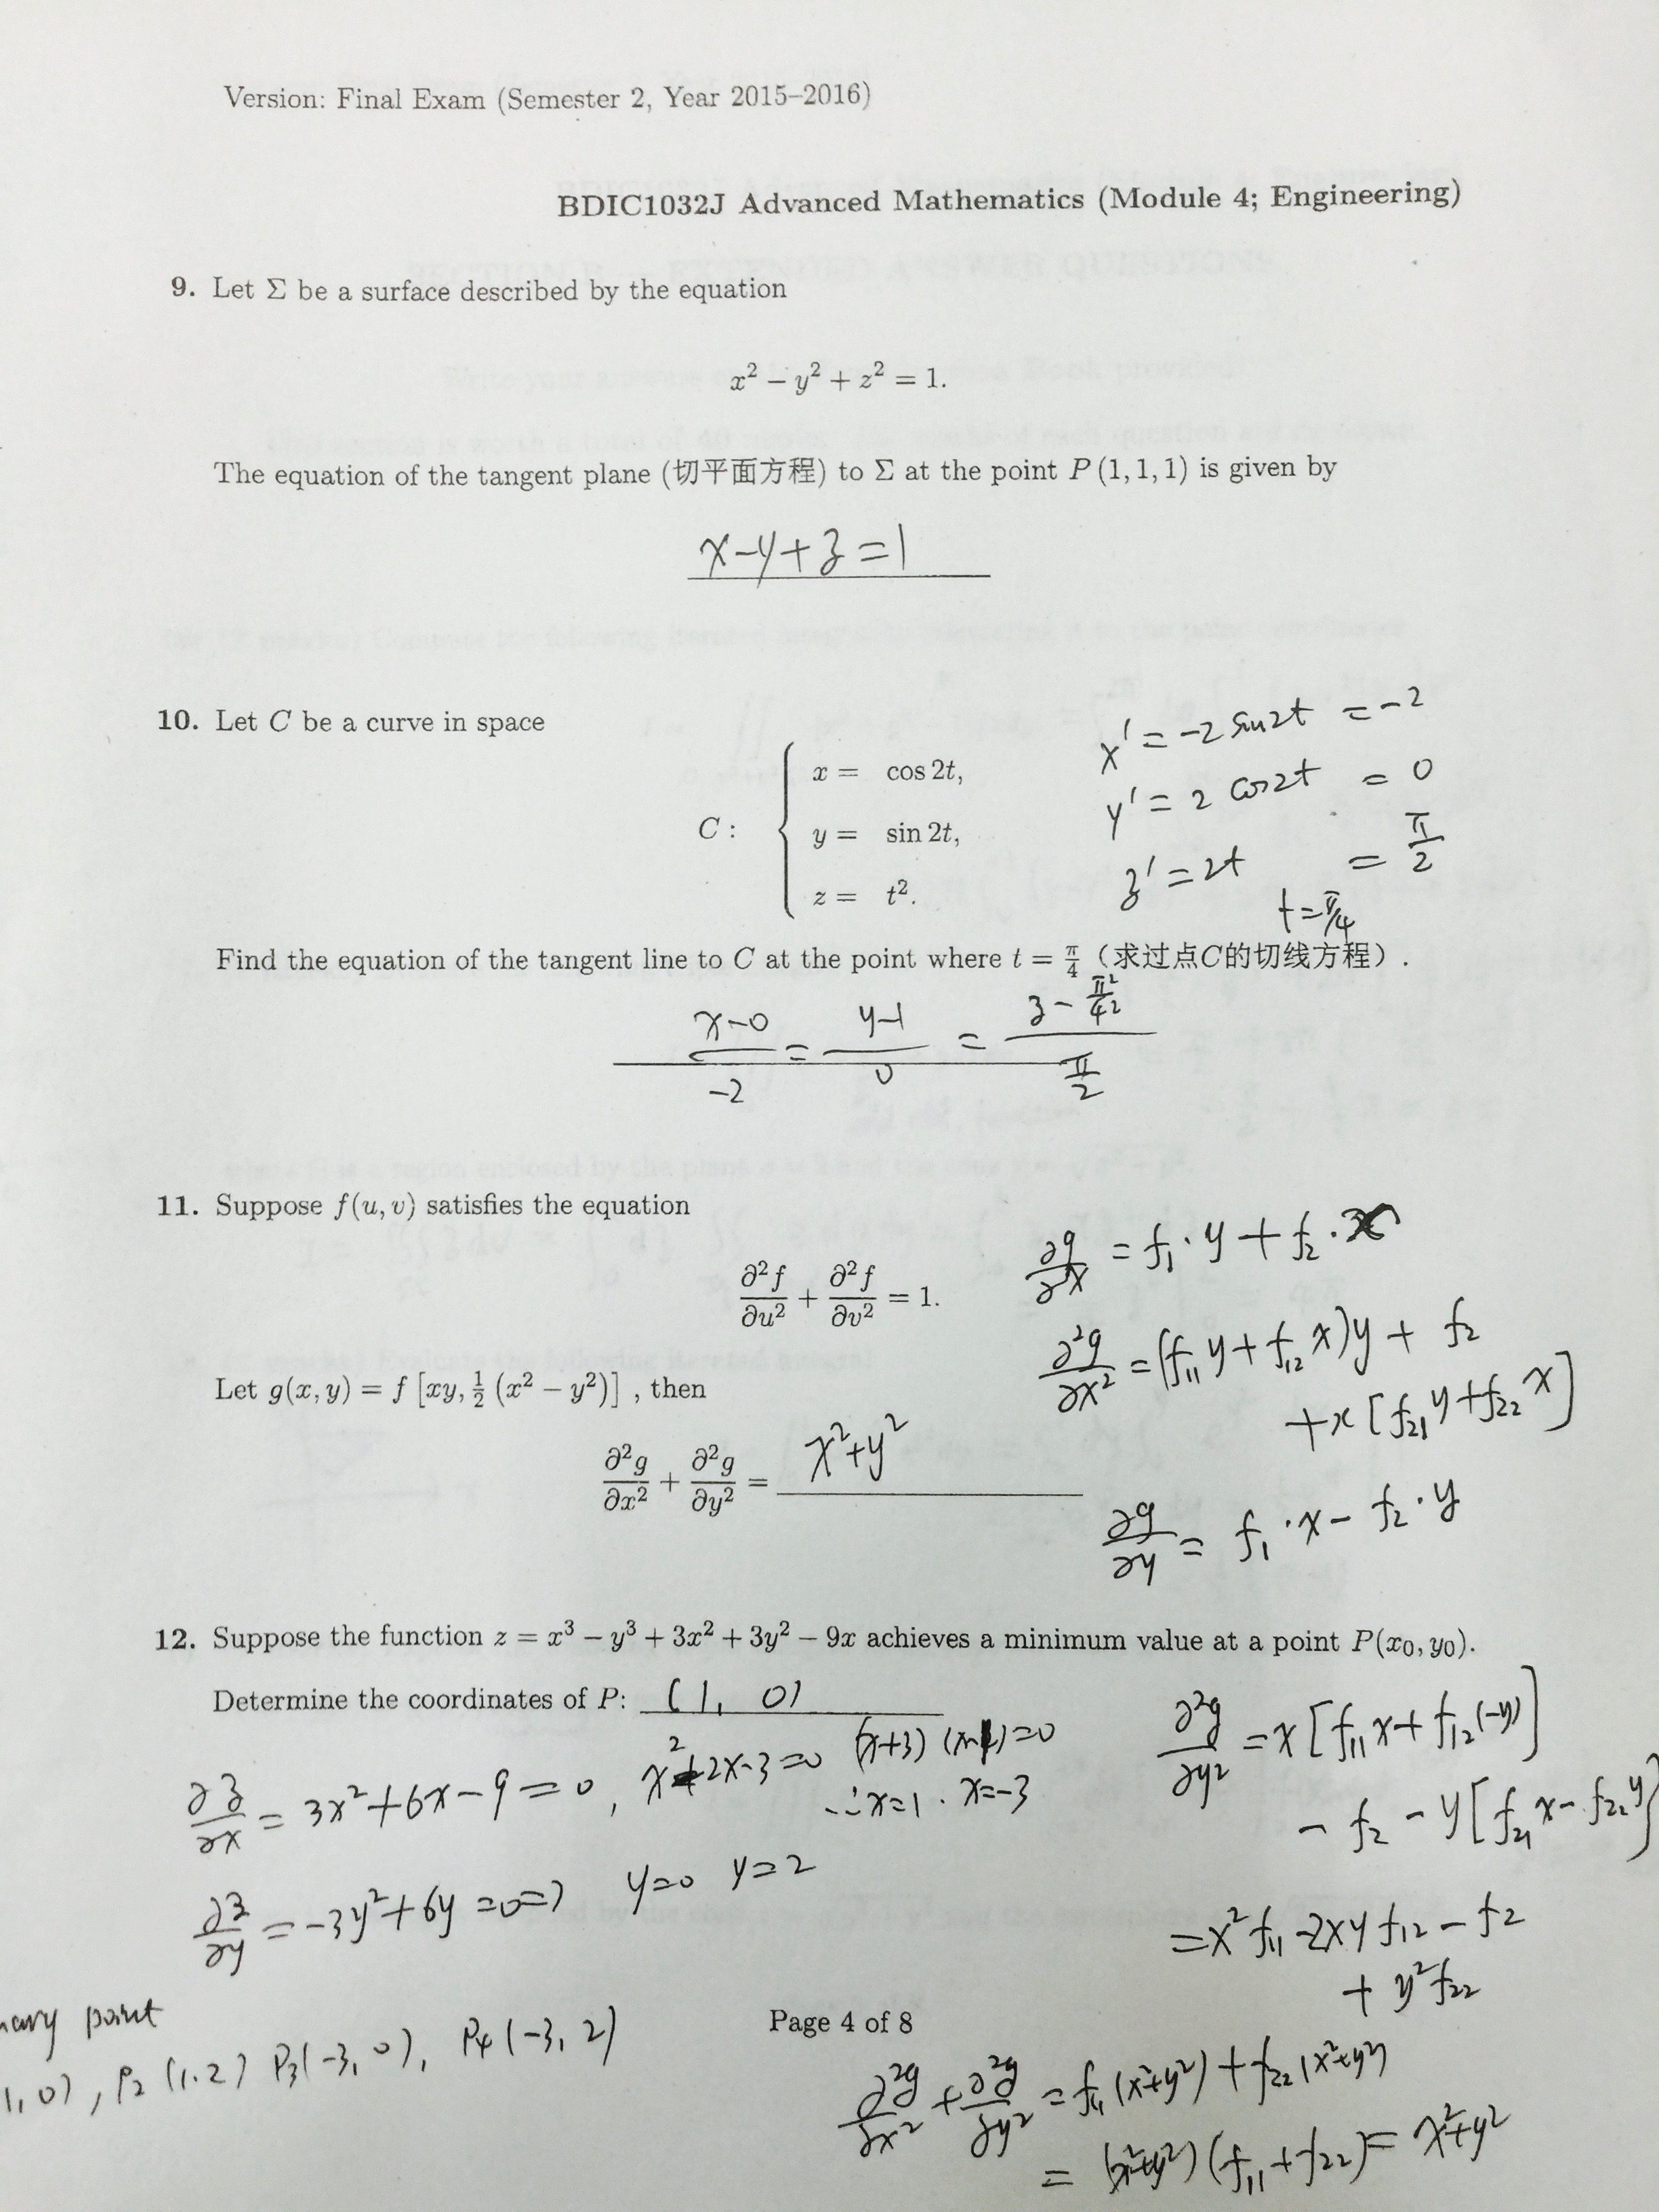 Version: Final Exam (Semester 2, Year 2015–2016)
BDIC1032J Advanced Mathematics (Module 4; Engineering)
9. Let Σ be a surface described by the equation
x² − y² + z² = 1.
The equation of the tangent plane (切平面方程) to Σ at the point P(1, 1, 1) is given by
x−y+z=1
10. Let C be a curve in space
C : { x = cos 2t,
y = sin 2t,
z = t².
x' = −2 sin2t = −2
y' = 2 cos2t = 0
z' = 2t = π/2
t = π/4
Find the equation of the tangent line to C at the point where t = π/4 (求过点C的切线方程).
(x−0)/−2 = (y−1)/0 = (z − π²/4²)/(π/2)
11. Suppose f(u, v) satisfies the equation
∂²f/∂u² + ∂²f/∂v² = 1.
Let g(x, y) = f [xy, ½ (x² − y²)] , then
∂²g/∂x² + ∂²g/∂y² = x²+y²
∂g/∂x = f₁·y + f₂·x
∂²g/∂x² = (f₁₁y + f₁₂x)y + f₂
+x[f₂₁y+f₂₂x]
∂g/∂y = f₁·x − f₂·y
12. Suppose the function z = x³ − y³ + 3x² + 3y² − 9x achieves a minimum value at a point P(x₀, y₀).
Determine the coordinates of P: (1, 0)
∂z/∂x = 3x²+6x−9=0, x²+2x−3=0 (x+3)(x−1)=0
∴x=1. x=−3
∂z/∂y = −3y²+6y=0=> y=0 y=2
∂²g/∂y² = x[f₁₁x+f₁₂(−y)]
− f₂ − y[f₂₁x−f₂₂y]
=x²f₁₁−2xyf₁₂−f₂
+ y²f₂₂
point
1, 0), P₂(1.2) P₃(−3, 0), P₄(−3, 2)
Page 4 of 8
∂²g/∂x² + ∂²g/∂y² = f₁₁(x²+y²)+f₂₂(x²+y²)
= (x²+y²)(f₁₁+f₂₂)= x²+y²